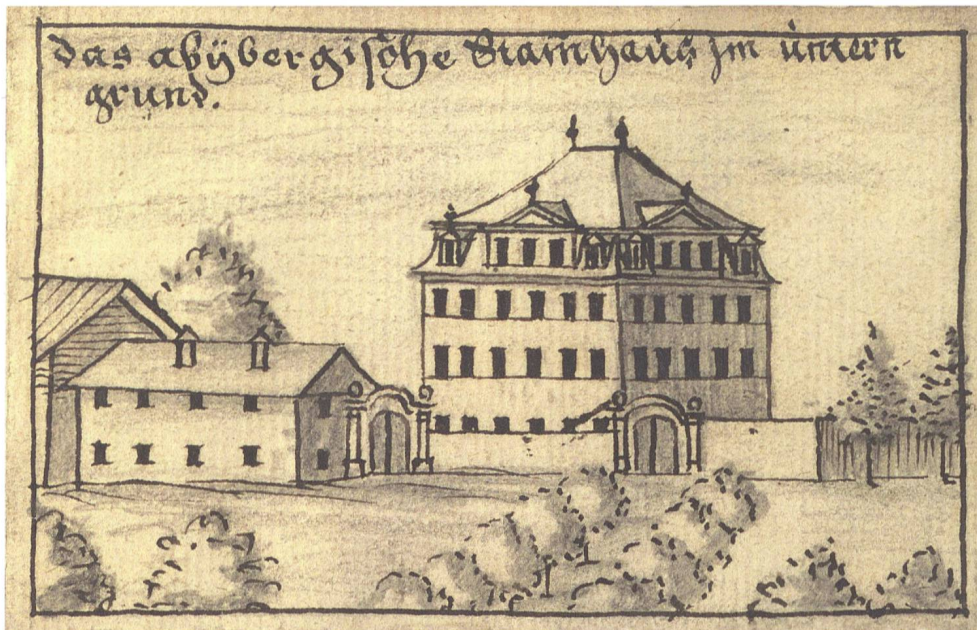 das abÿbergische Stam̄haus jm untern
grund.